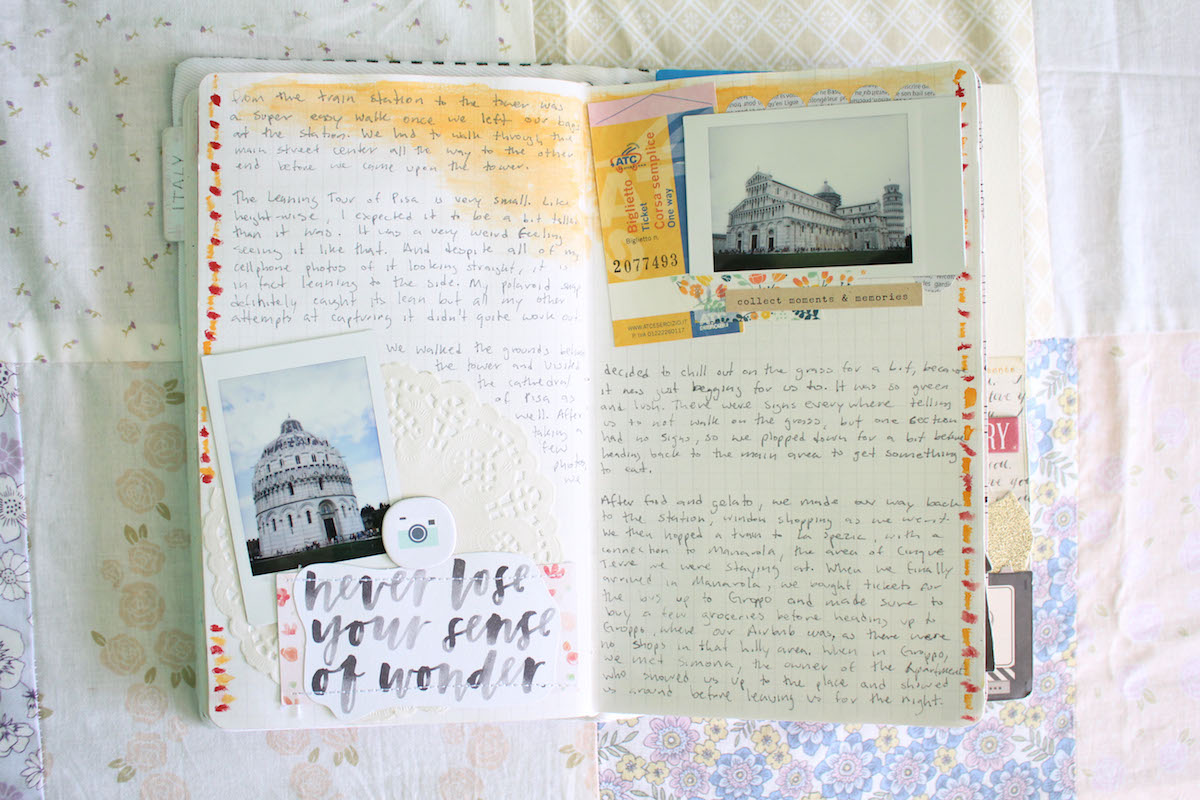 from the train station to the tower was
a super easy walk once we left our bags
at the station. We had to walk through the
main street center all the way to the other
end before we came upon the tower.
ITALY
The Leaning Tour of Pisa is very small. Like
height-wise, I expected it to be a bit taller
than it was. It was a very weird feeling
seeing it like that. And despite all of my
cellphone photos of it looking straight, it is
in fact leaning to the side. My polaroid snap
definitely caught its lean but all my other
attempts at capturing it didn't quite work out
We walked the grounds behind
the tower and visited
the cathedral
of Pisa as
well. After
taking a
few
photos,
we
never lose
your sense
of wonder
ATC
Biglietto
Ticket
Corsa semplice
One way
Biglietto n.
2077493
collect moments & memories
decided to chill out on the grass for a bit, because
it was just begging for us to. It was so green
and lush. There were signs everywhere telling
us to not walk on the grass, but one section
had no signs, so we plopped down for a bit before
heading back to the main area to get something
to eat.
After food and gelato, we made our way back
to the station, window shopping as we went.
We then hopped a train to La Spezia, with a
connection to Manarola, the area of Cinque
Terre we were staying at. When we finally
arrived in Manarola, we bought tickets for
the bus up to Groppo and made sure to
buy a few groceries before heading up to
Groppo, where our Airbnb was, as there were
no shops in that hilly area. When in Groppo,
we met Simona, the owner of the Apartment
who showed us up to the place and showed
us around before leaving us for the night.
RY